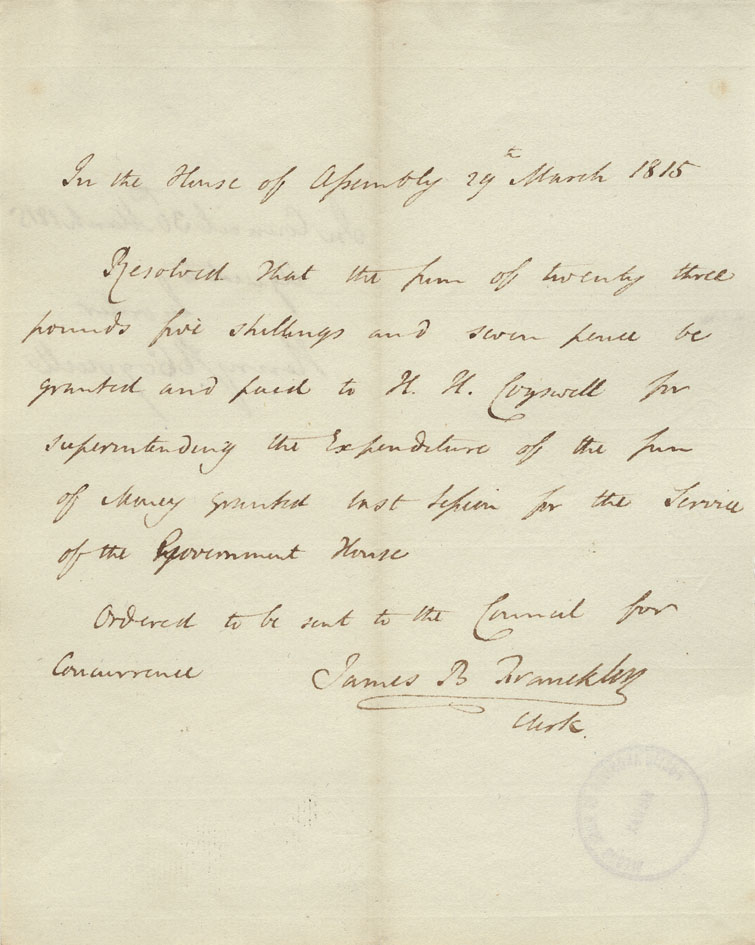 In the House of Assembly 29th March 1815
Resolved that the sum of twenty three
pounds five shillings and seven pence be
granted and paid to H. H. Cogswell for
superintending the Expenditure of the sum
of Money granted last Session for the Service
of the Government House
Ordered to be sent to the Council for
Concurrence
James B Francklin
Clerk.